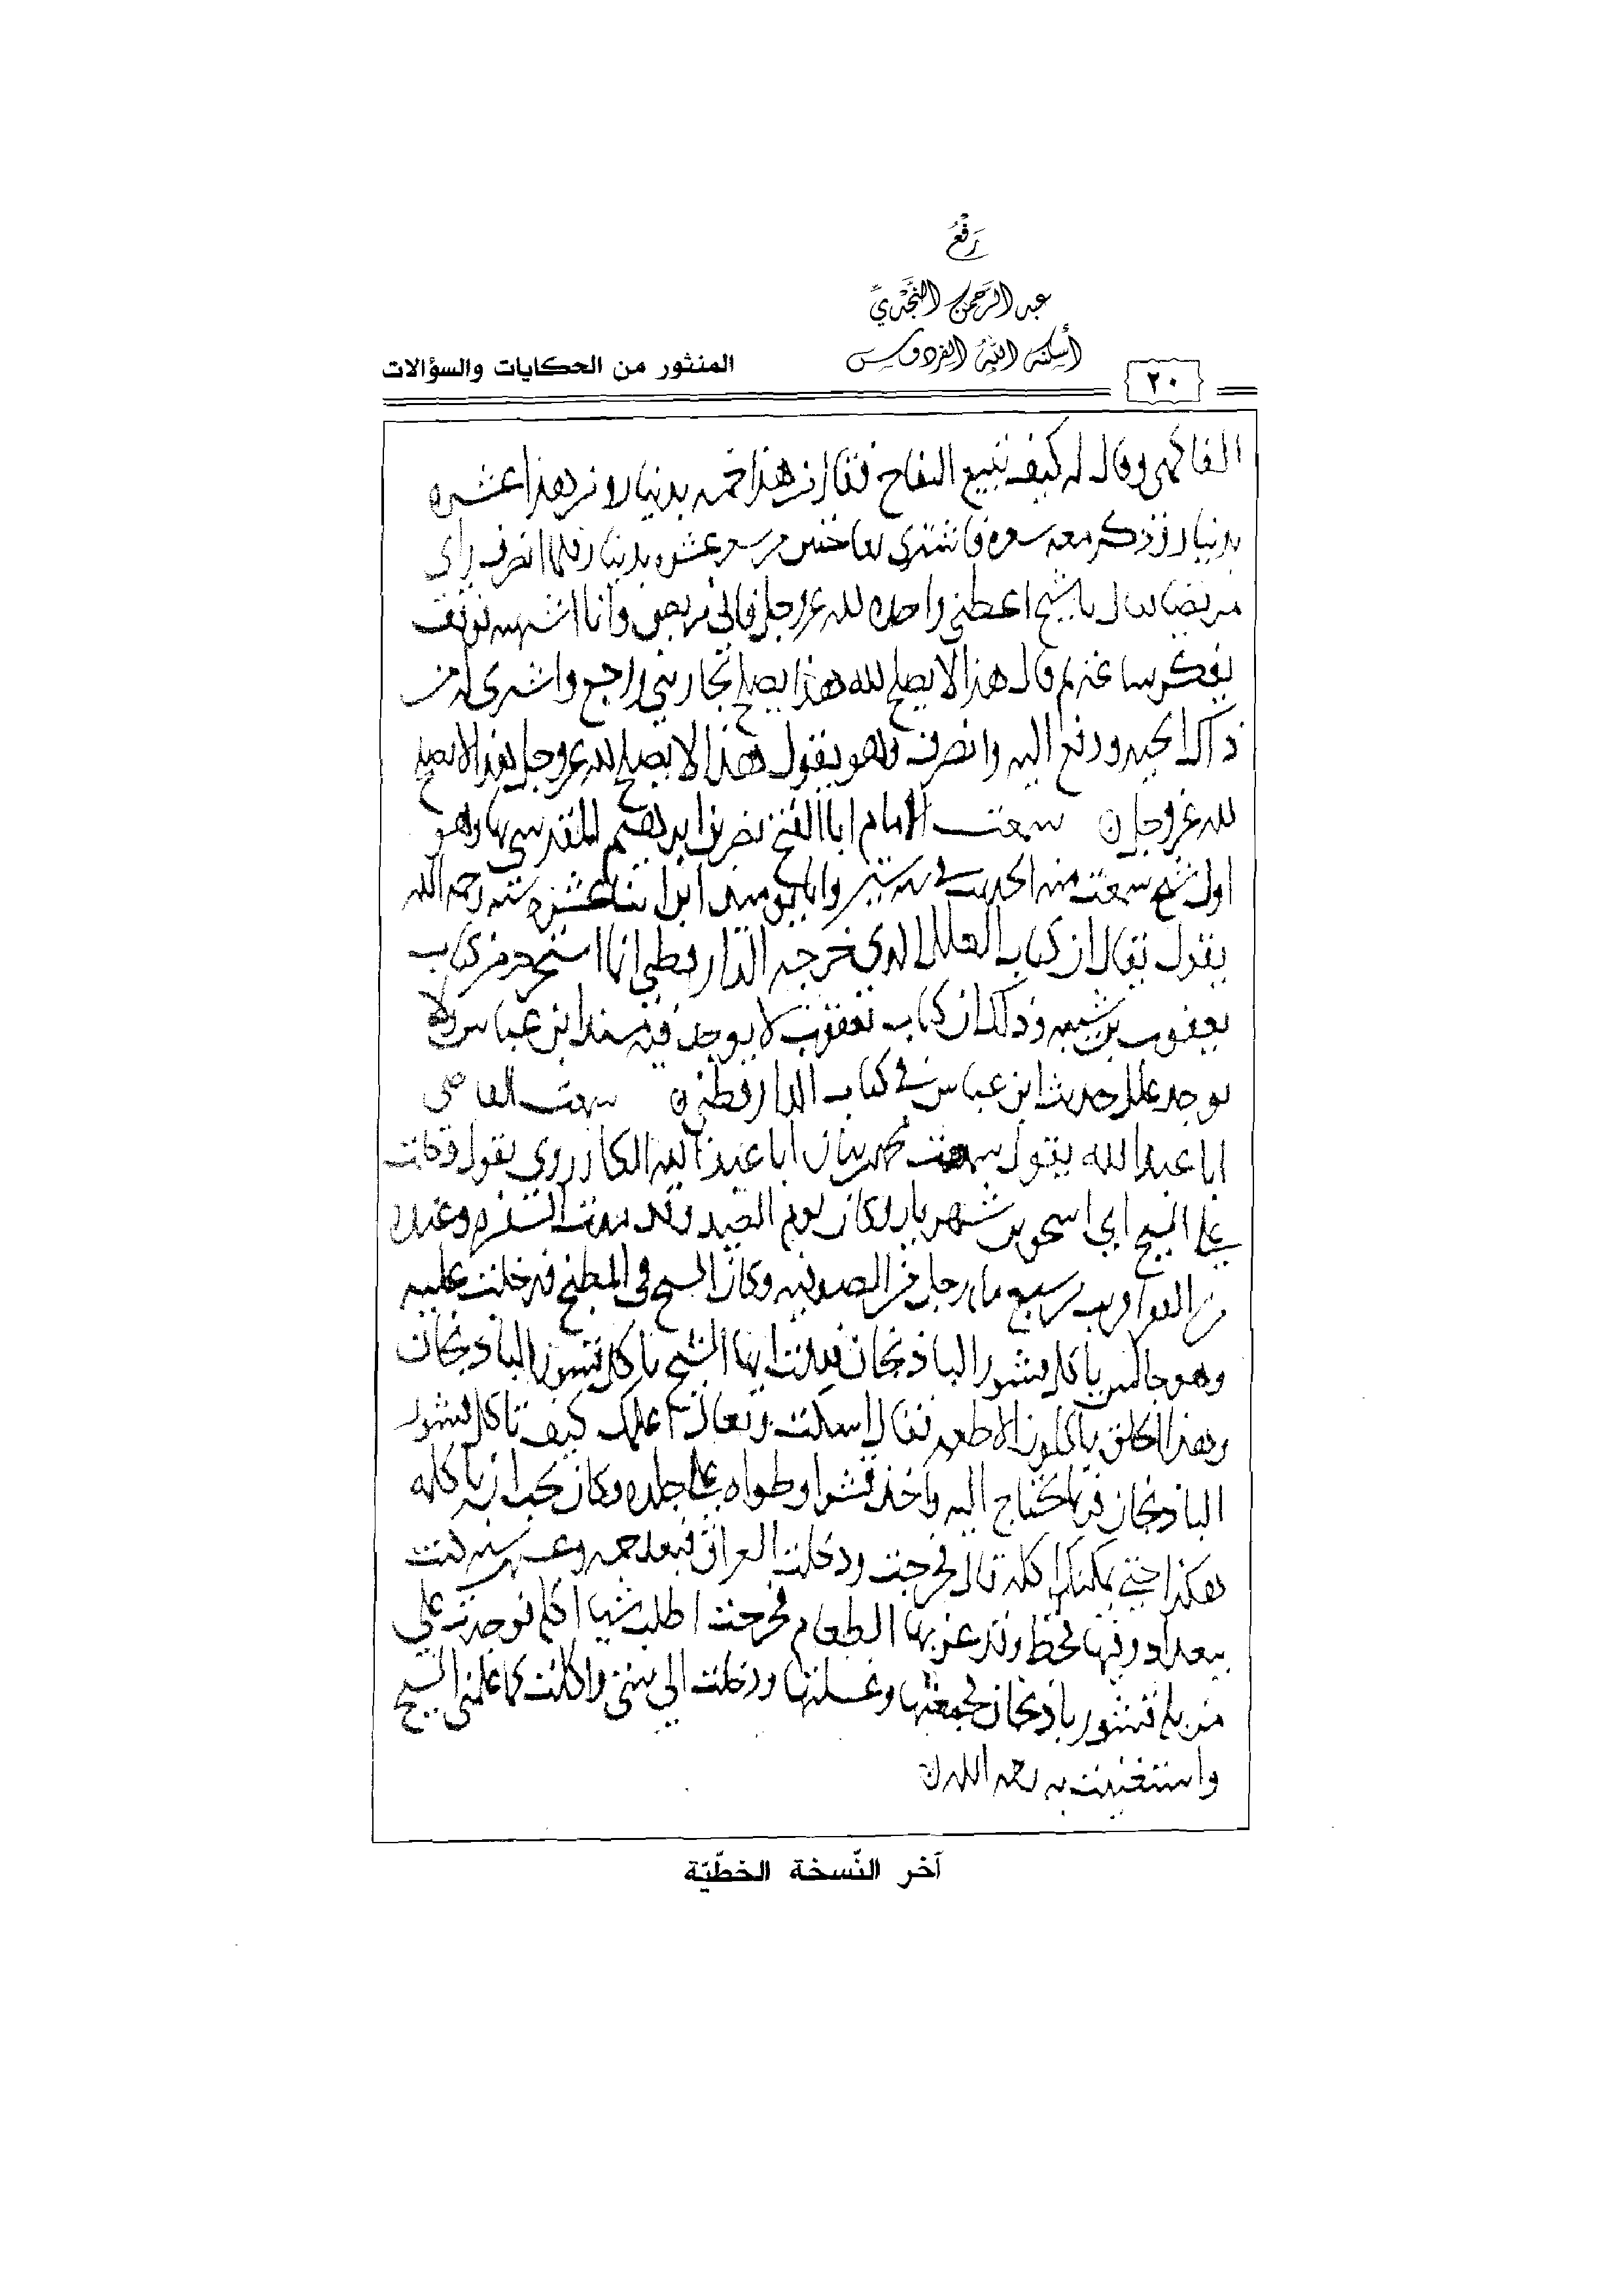 رَفْعُ
عبد الرَّحمن النَّجْدِيّ
أسكنه الله الفردوس
٢٠
المنثور من الحكايات والسؤالات
الفاكهي وقال له كيف تبيع التفاح فقال من هذا خمسه بدينار ومن هذا عشره
بدينار فاشترى من سعر عشره بدينار فلما انصرف راى
مريضا فقال يا شيخ اعطني واحده لله عز وجل فاني مريض وانا اشتهيه فوقف
يفكر ساعه ثم قال هذا لا يصلح لله هذا يصلح لجاريتي ورجع واشترى له من
ذاك الجيد ودفع اليه وانصرف وهو يقول هذا لا يصلح لله عز وجل هذا لا يصلح
لله عز وجل ٥ سمعت الامام ابا الفتح نصر بن ابرهيم المقدسي بها وهو
اول شيخ سمعت منه الحديث في سنه ستين وانا يوميذ ابن اثنا عشره سنه رحمه الله
يقول يقال ان كتاب العلل الذي خرجه الدارقطني انما استخرجه من كتاب
يعقوب بن شيبه وذلك ان كتاب يعقوب لا يوجد فيه مسند ابن عباس ولا
يوجد علل حديث ابن عباس في كتاب الدارقطني ٥ سمعت القاضي
ابا عبد الله يقول سمعت ابا عبد الله الكازروني يقول دخلت
على الشيخ ابي اسحق بن شهريار وكان يوم العيد وقد مدت السفره وعنده
من سبع مايه رجل من الصوفيه وكان الشيخ في المطبخ فدخلت عليه
وهو جالس ياكل قشور الباذنجان فقلت ايها الشيخ تاكل قشور الباذنجان
وهذا الخلق ياكلون الاطعمه فقال اسكت وتعال اعلمك كيف تاكل قشور
الباذنجان فربما تحتاج اليه واخذ قشرا وطواه على جلده وكان يحب ان ياكله
هكذا حتى يمكنك اكله قال فخرجت ودخلت العراق فبعد خمسه وعشرين سنه كنت
ببغداد وفيها قحط وقد عز بها الطعام فخرجت اطلب شيا اكله فوجدت على
مزبله قشور باذنجان فجمعتها وغسلتها ودخلت الى بيتي واكلت كما علمني الشيخ
واستغنيت به رحمه الله ٥
آخر النّسخة الخطّيّة